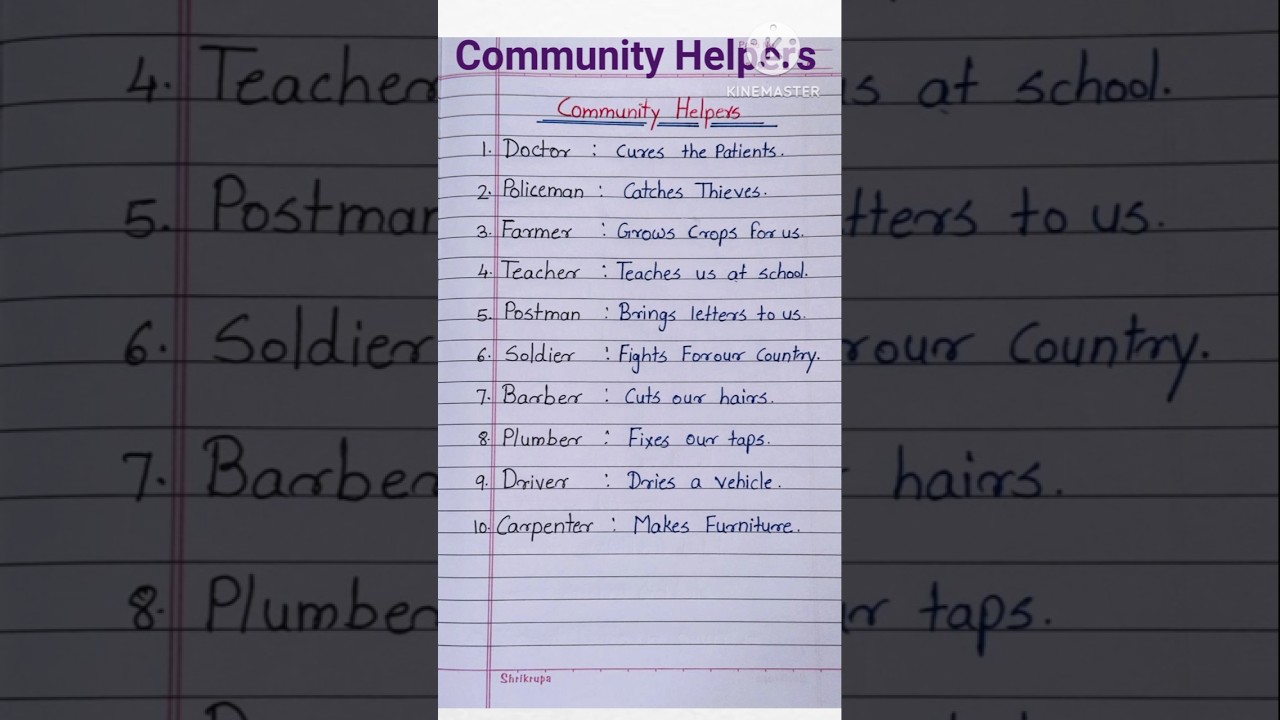 Community Helpers
KINEMASTER
Community Helpers
1. Doctor : Cures the Patients.
2. Policeman : Catches Thieves.
3. Farmer : Grows Crops for us.
4. Teacher : Teaches us at school.
5. Postman : Brings letters to us.
6. Soldier : Fights For our Country.
7. Barber : Cuts our hairs.
8. Plumber : Fixes our taps.
9. Driver : Dries a vehicle.
10. Carpenter : Makes Furniture.
Shrikrupa
4. Teacher
s at school.
5. Postman
tters to us.
6. Soldier
r our Country.
7. Barber
hairs.
8. Plumber
r taps.